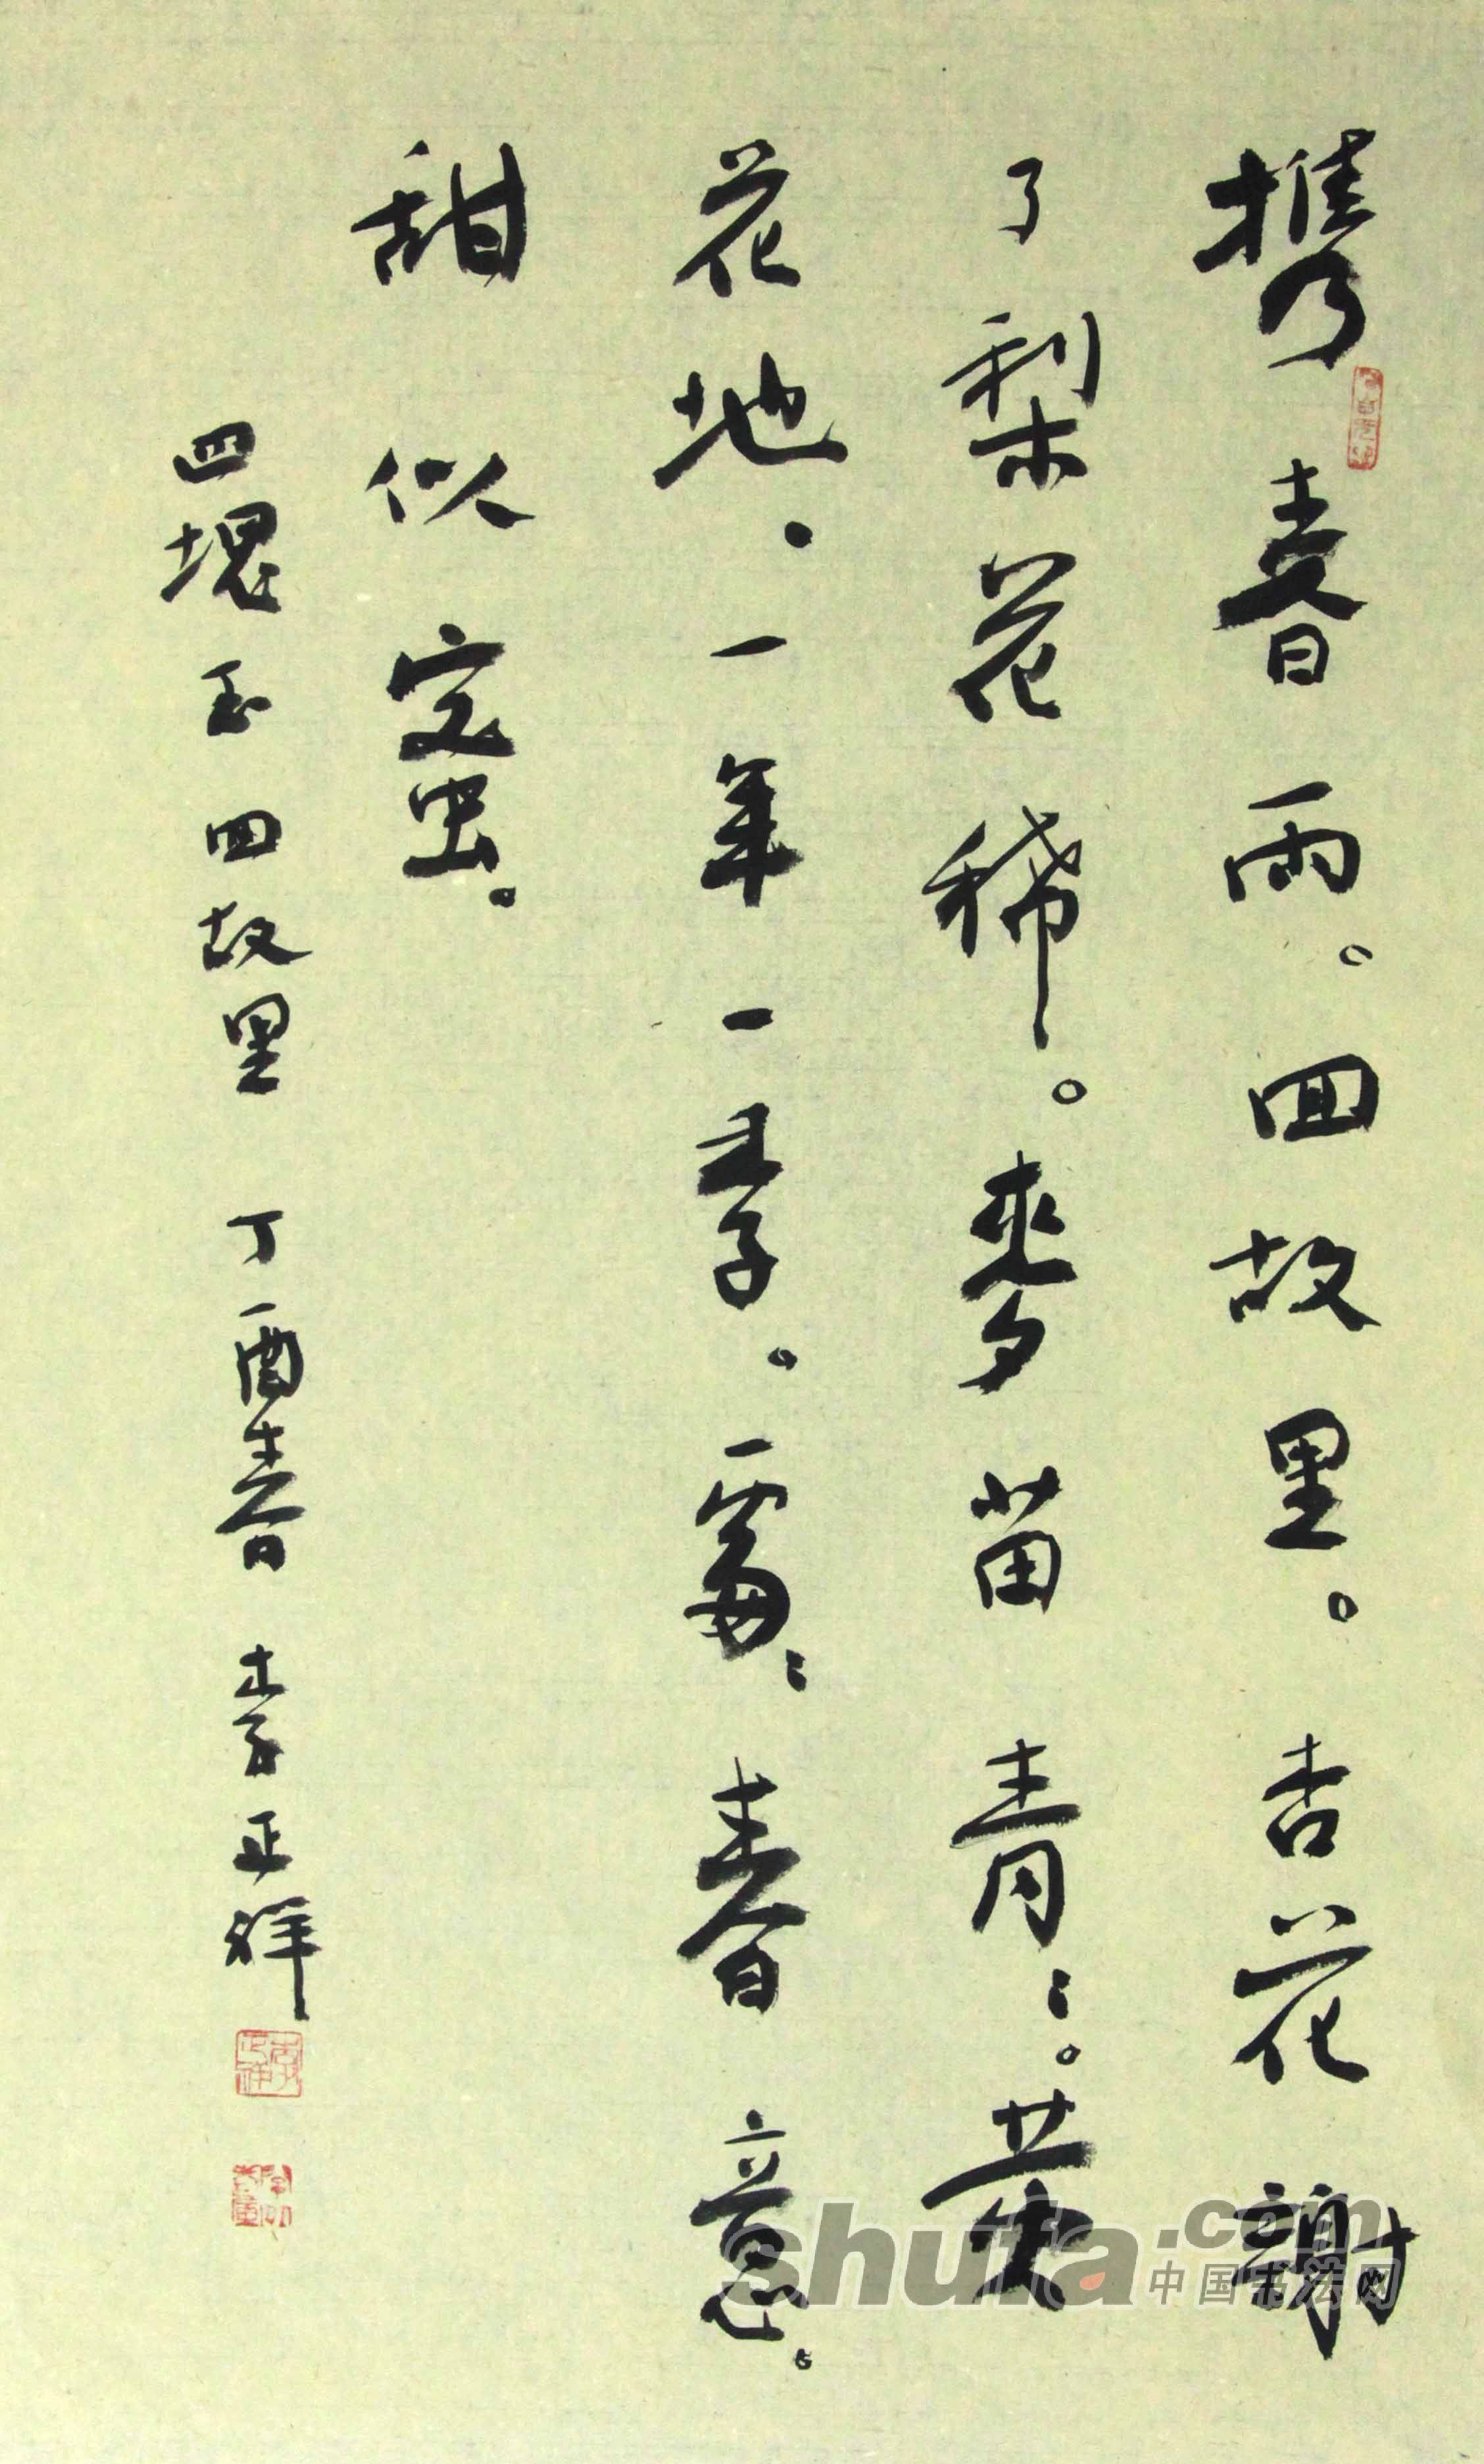 携春雨。回故里。杏花謝
了梨花稀。麥苗青〻。英
花地。一年一季。一處〻春意。
甜似蜜。
四塊玉 回故里 丁酉春 李正祥
shufa.com
中国书法网